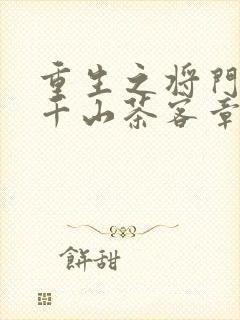 重生之将门
千山茶客章
餅甜